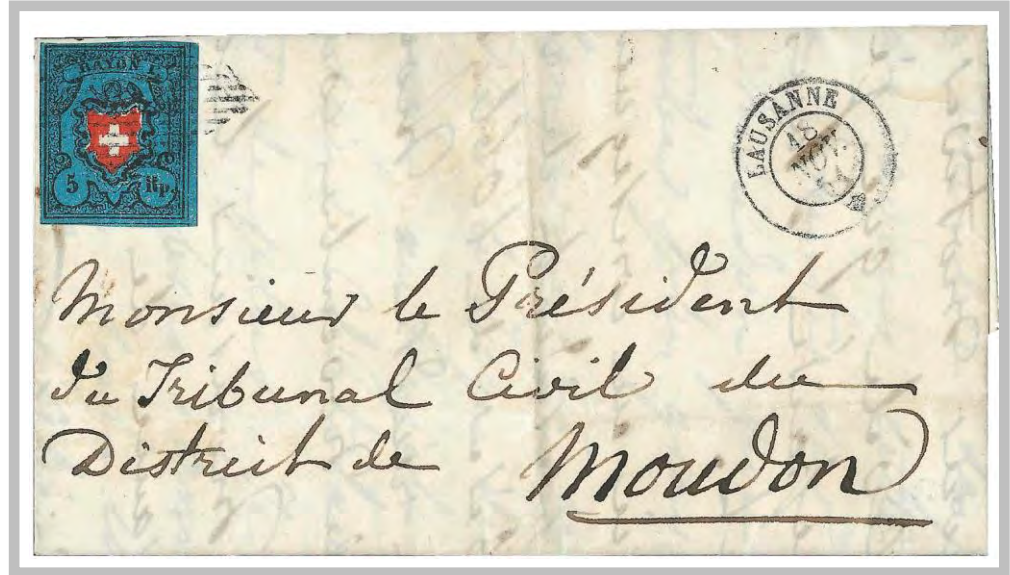 RAYON I
5 Rp.
LAUSANNE
18
NOV.
51
Monsieur le Président
du Tribunal Civil du
District de Moudon